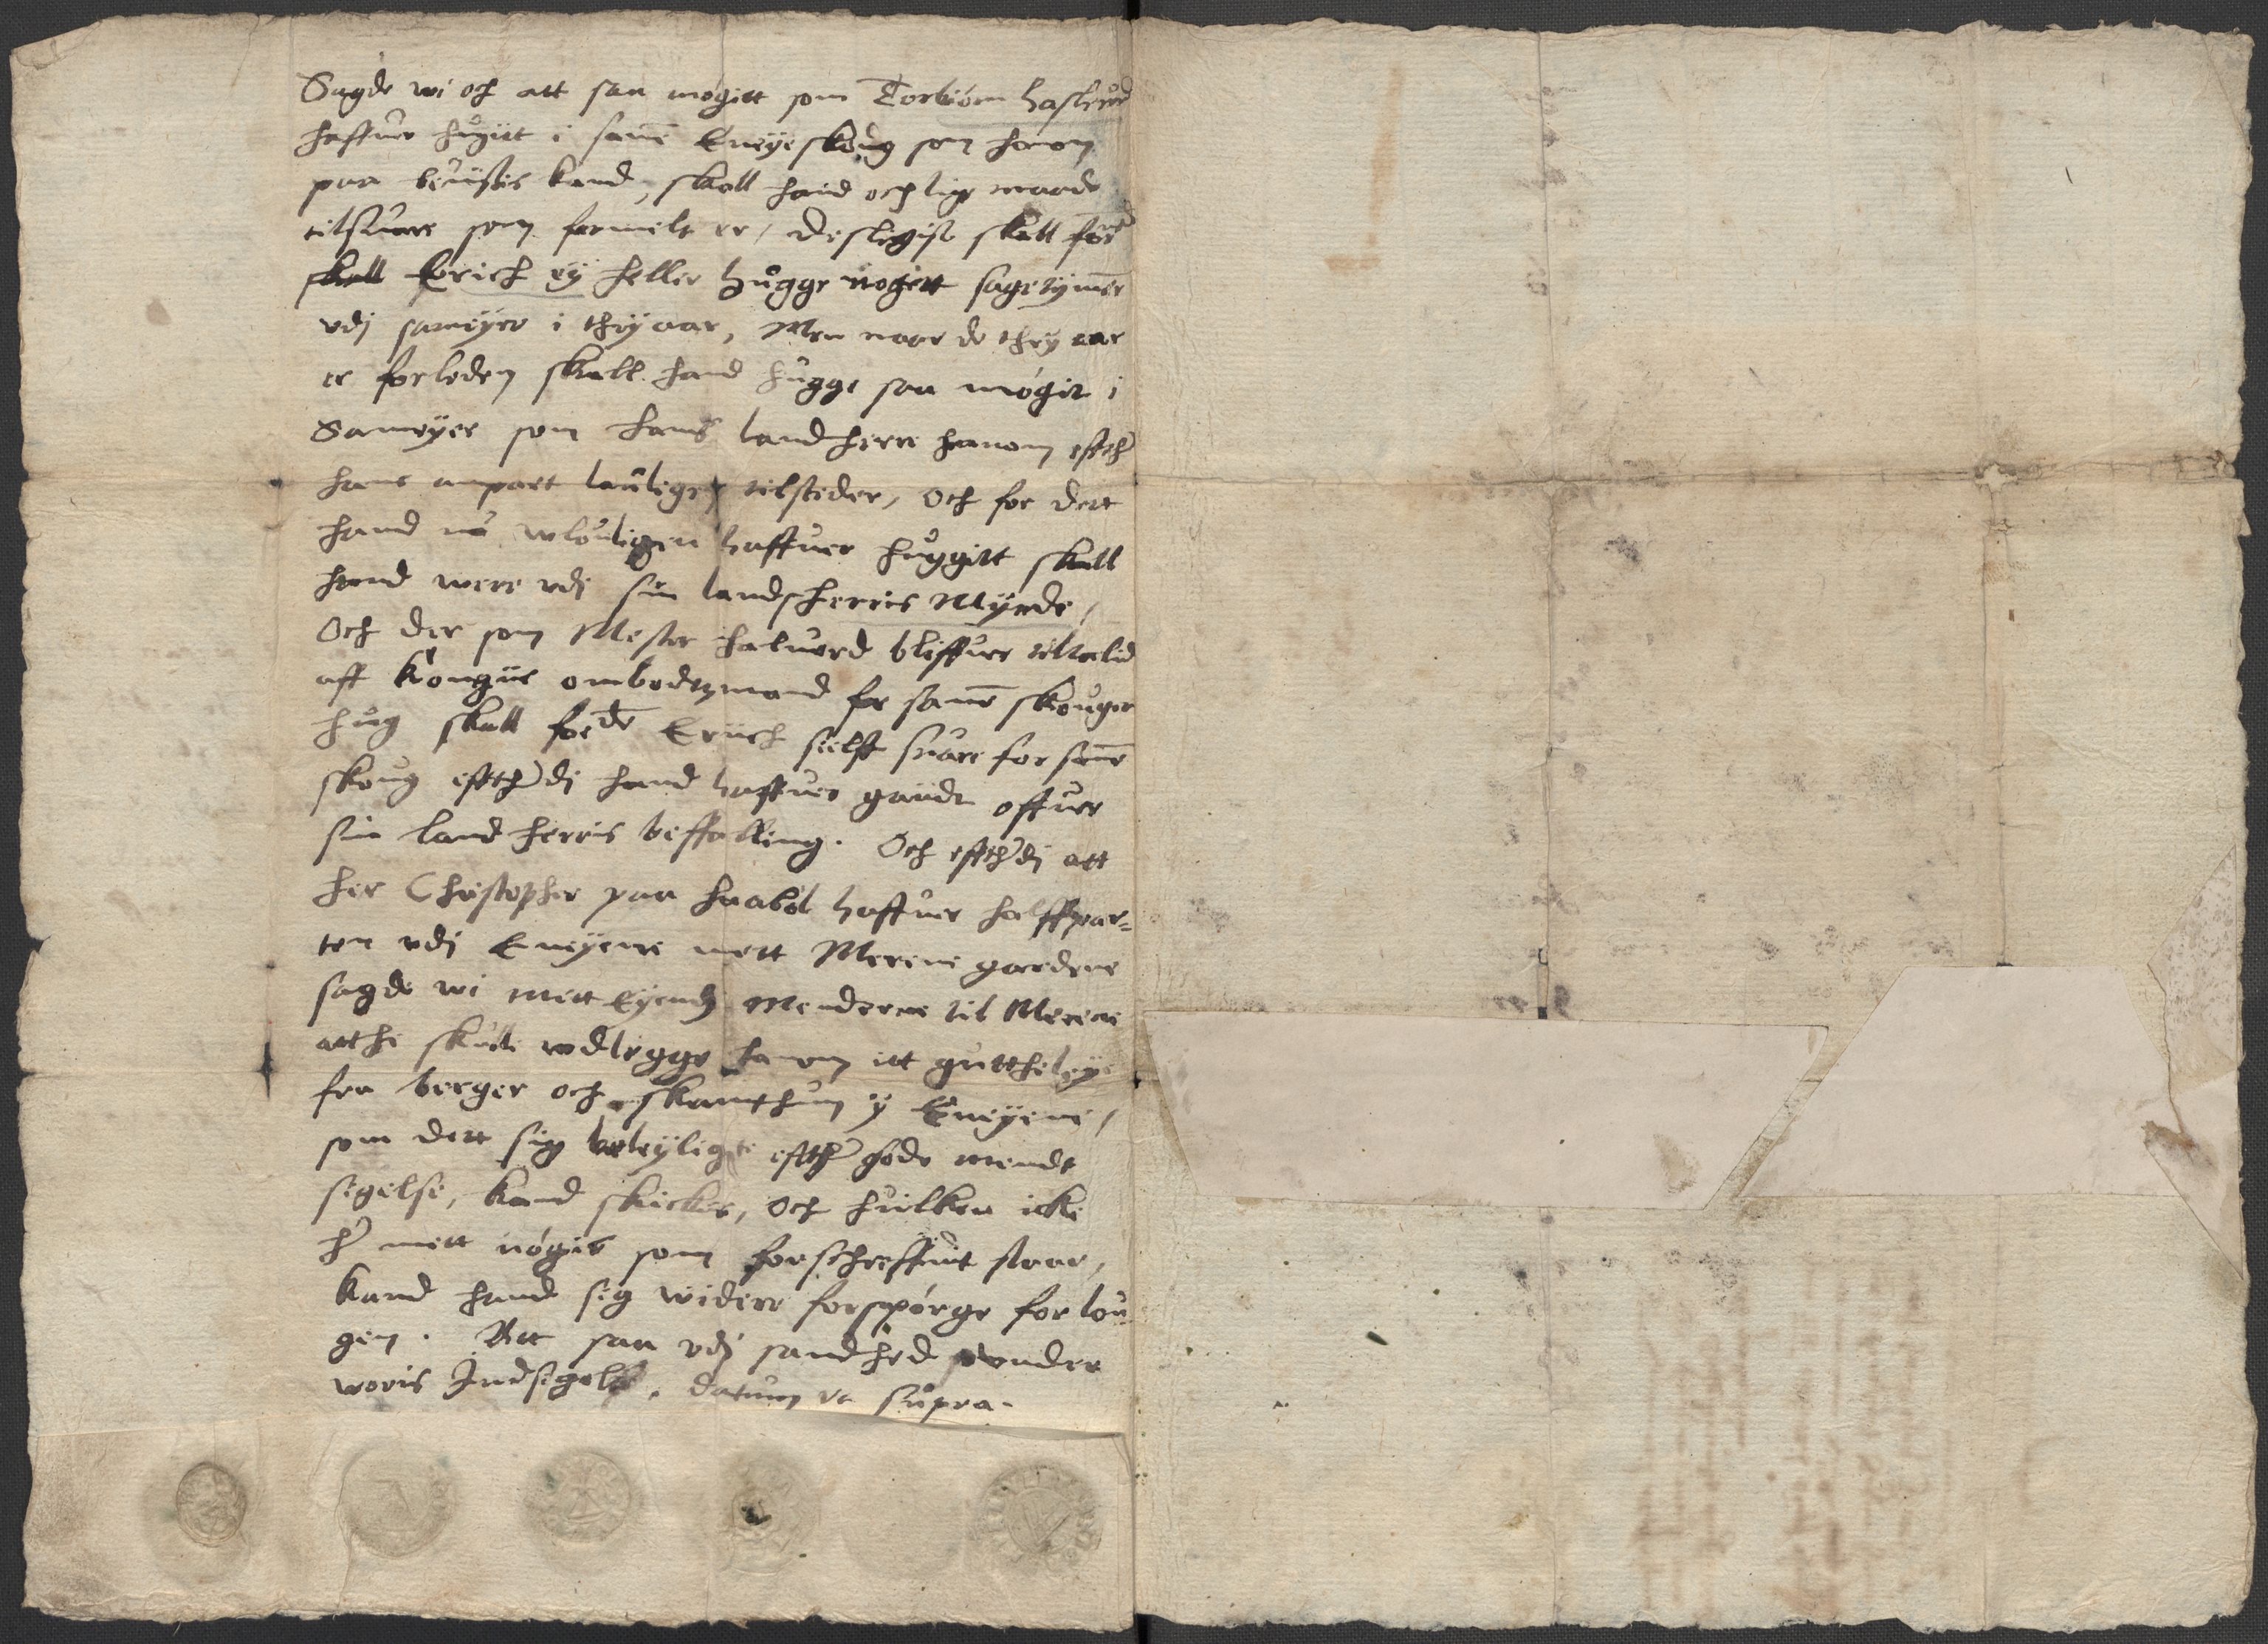 Sagde wi och att saa mögitt som Torbiörn haslerud
haffuer huggitt i same Eneyeskoug som honom
paa beuises kand, skall hand och lige maade
tilsuare som formelt er, desligist skall forne
skall Erich ey heller hugge nogett sagetymer
vdj sameyer i thry aar, Men naar de thry aar
er forleden skall hand hugge saa mögit i
Sameyer som hans landherre hanom effther
hans anpart lauligen tilsteder, Och for dett
hand nu vlouligen haffuer huggitt skall
hand were vdj sin landsherris Mynde,
Och der som Mester haluord bliffuer tiltalid
aff Kongiis ombodtzmand for same skouger
hug skall forde Eriich sielff suare for same
skoug effttherdj hand haffuer gaiidt offuer
sin landherris beffalling. Och effttherdj att
her Christopher paa Haabøl haffuer halffpar=
ten vdj Eneyene mett Merene gardene
sagde wi mett Eyendz Menderne til Merene
atthi skulle wdlegge hanom itt gutt theleye
fra berger och skamthun y Eneyene,
som dett sig beleyligste effther gode mendz
sigelse, kand skickes, Och huilken icke
her mett nögis som forschreffuit staar,
kand hand sig widere forspörge for lou
gen. Att saa vdj sandhed er wnder
woris Indsegelse. datum vt supra.